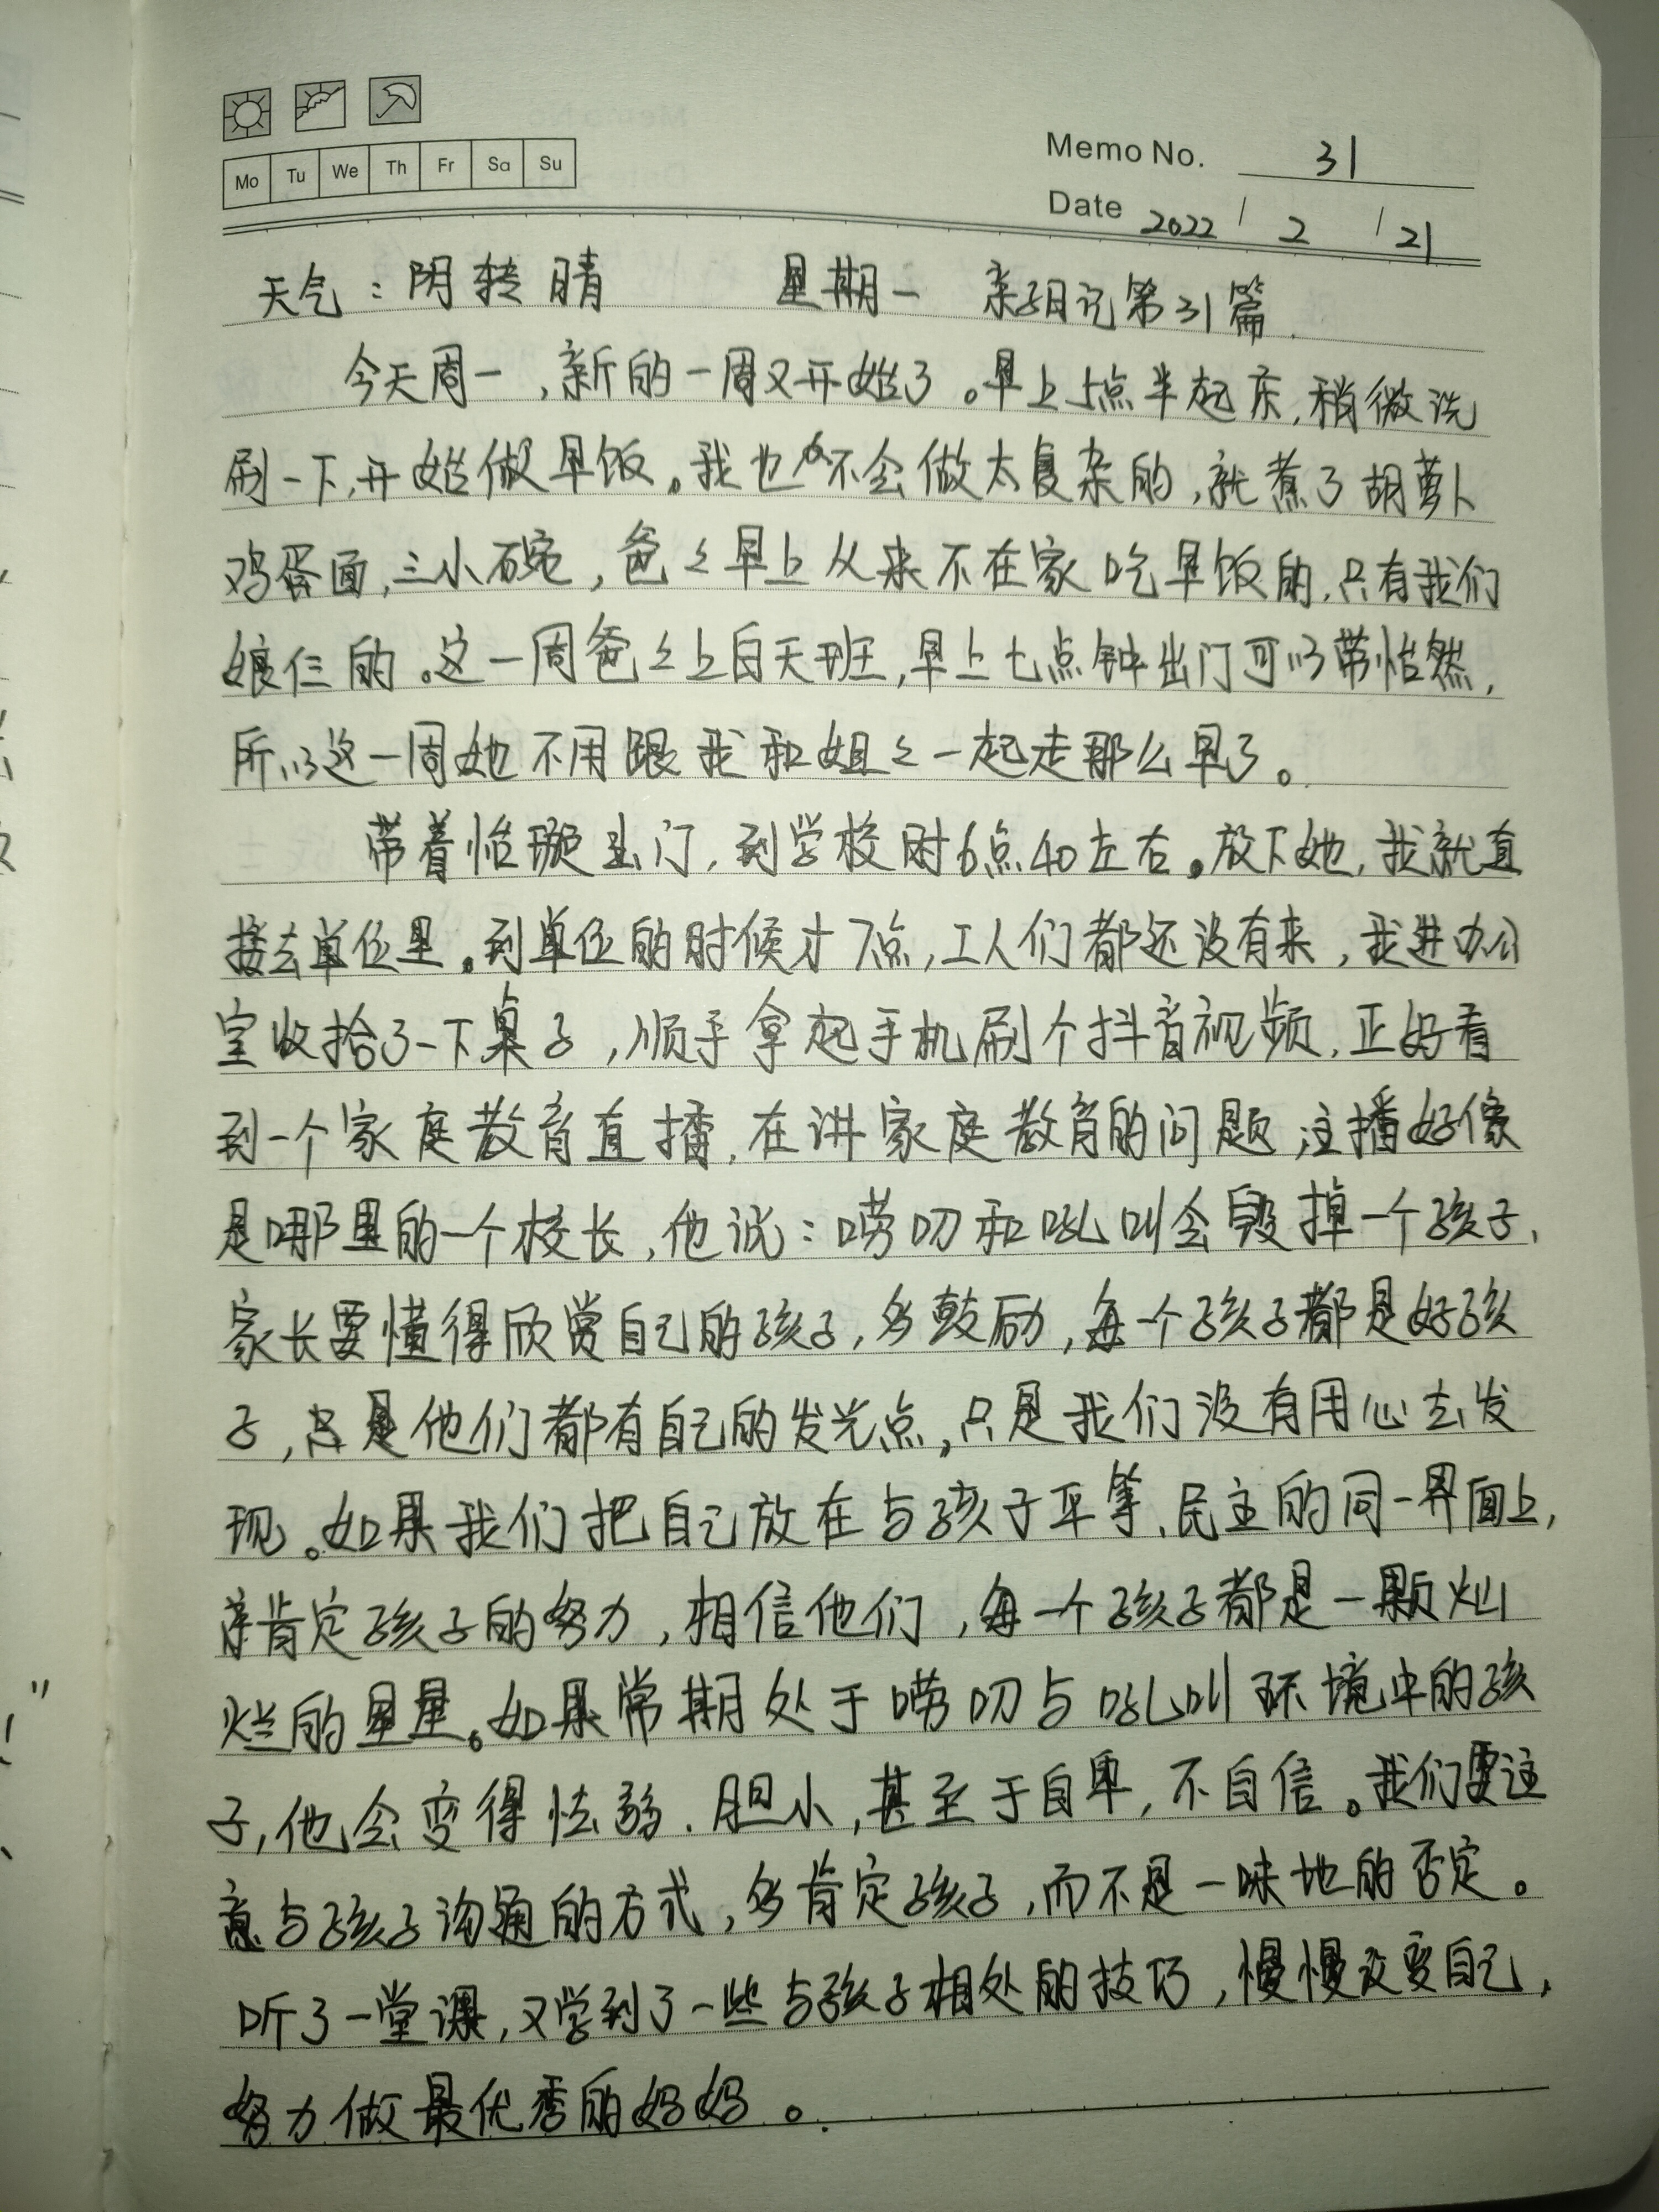 Mo Tu We Th Fr Sa Su
Memo No. 31
Date 2022 / 2 / 21
天气：阴转晴 星期一 亲子日记第31篇.
今天周一，新的一周又开始了。早上5点半起床，稍微洗
刷一下，开始做早饭。我也不会做太复杂的，就煮了胡萝卜
鸡蛋面，三小碗，爸爸早上从来不在家吃早饭的，只有我们
娘仨的。这一周爸爸上白天班，早上七点钟出门可以带怡然，
所以这一周她不用跟我和姐姐一起走那么早了。
带着怡璇出门，到学校时6点40左右。放下她，我就直
接去单位里。到单位的时候才7点，工人们都还没有来，我进办公
室收拾了一下桌子，顺手拿起手机刷个抖音视频，正好看
到一个家庭教育直播，在讲家庭教育的问题，主播好像
是哪里的一个校长，他说：唠叨和吼叫会毁掉一个孩子，
家长要懂得欣赏自己的孩子，多鼓励，每一个孩子都是好孩
子，只是他们都有自己的发光点，只是我们没有用心去发
现。如果我们把自己放在与孩子平等、民主的同一界面上，
肯定孩子的努力，相信他们，每一个孩子都是一颗灿
烂的星星。如果常期处于唠叨与吼叫环境中的孩
子，他会变得怯弱、胆小，甚至于自卑，不自信。我们要注
意与孩子沟通的方式，多肯定孩子，而不是一味地的否定。
听了一堂课，又学到了一些与孩子相处的技巧，慢慢改变自己，
努力做最优秀的妈妈。